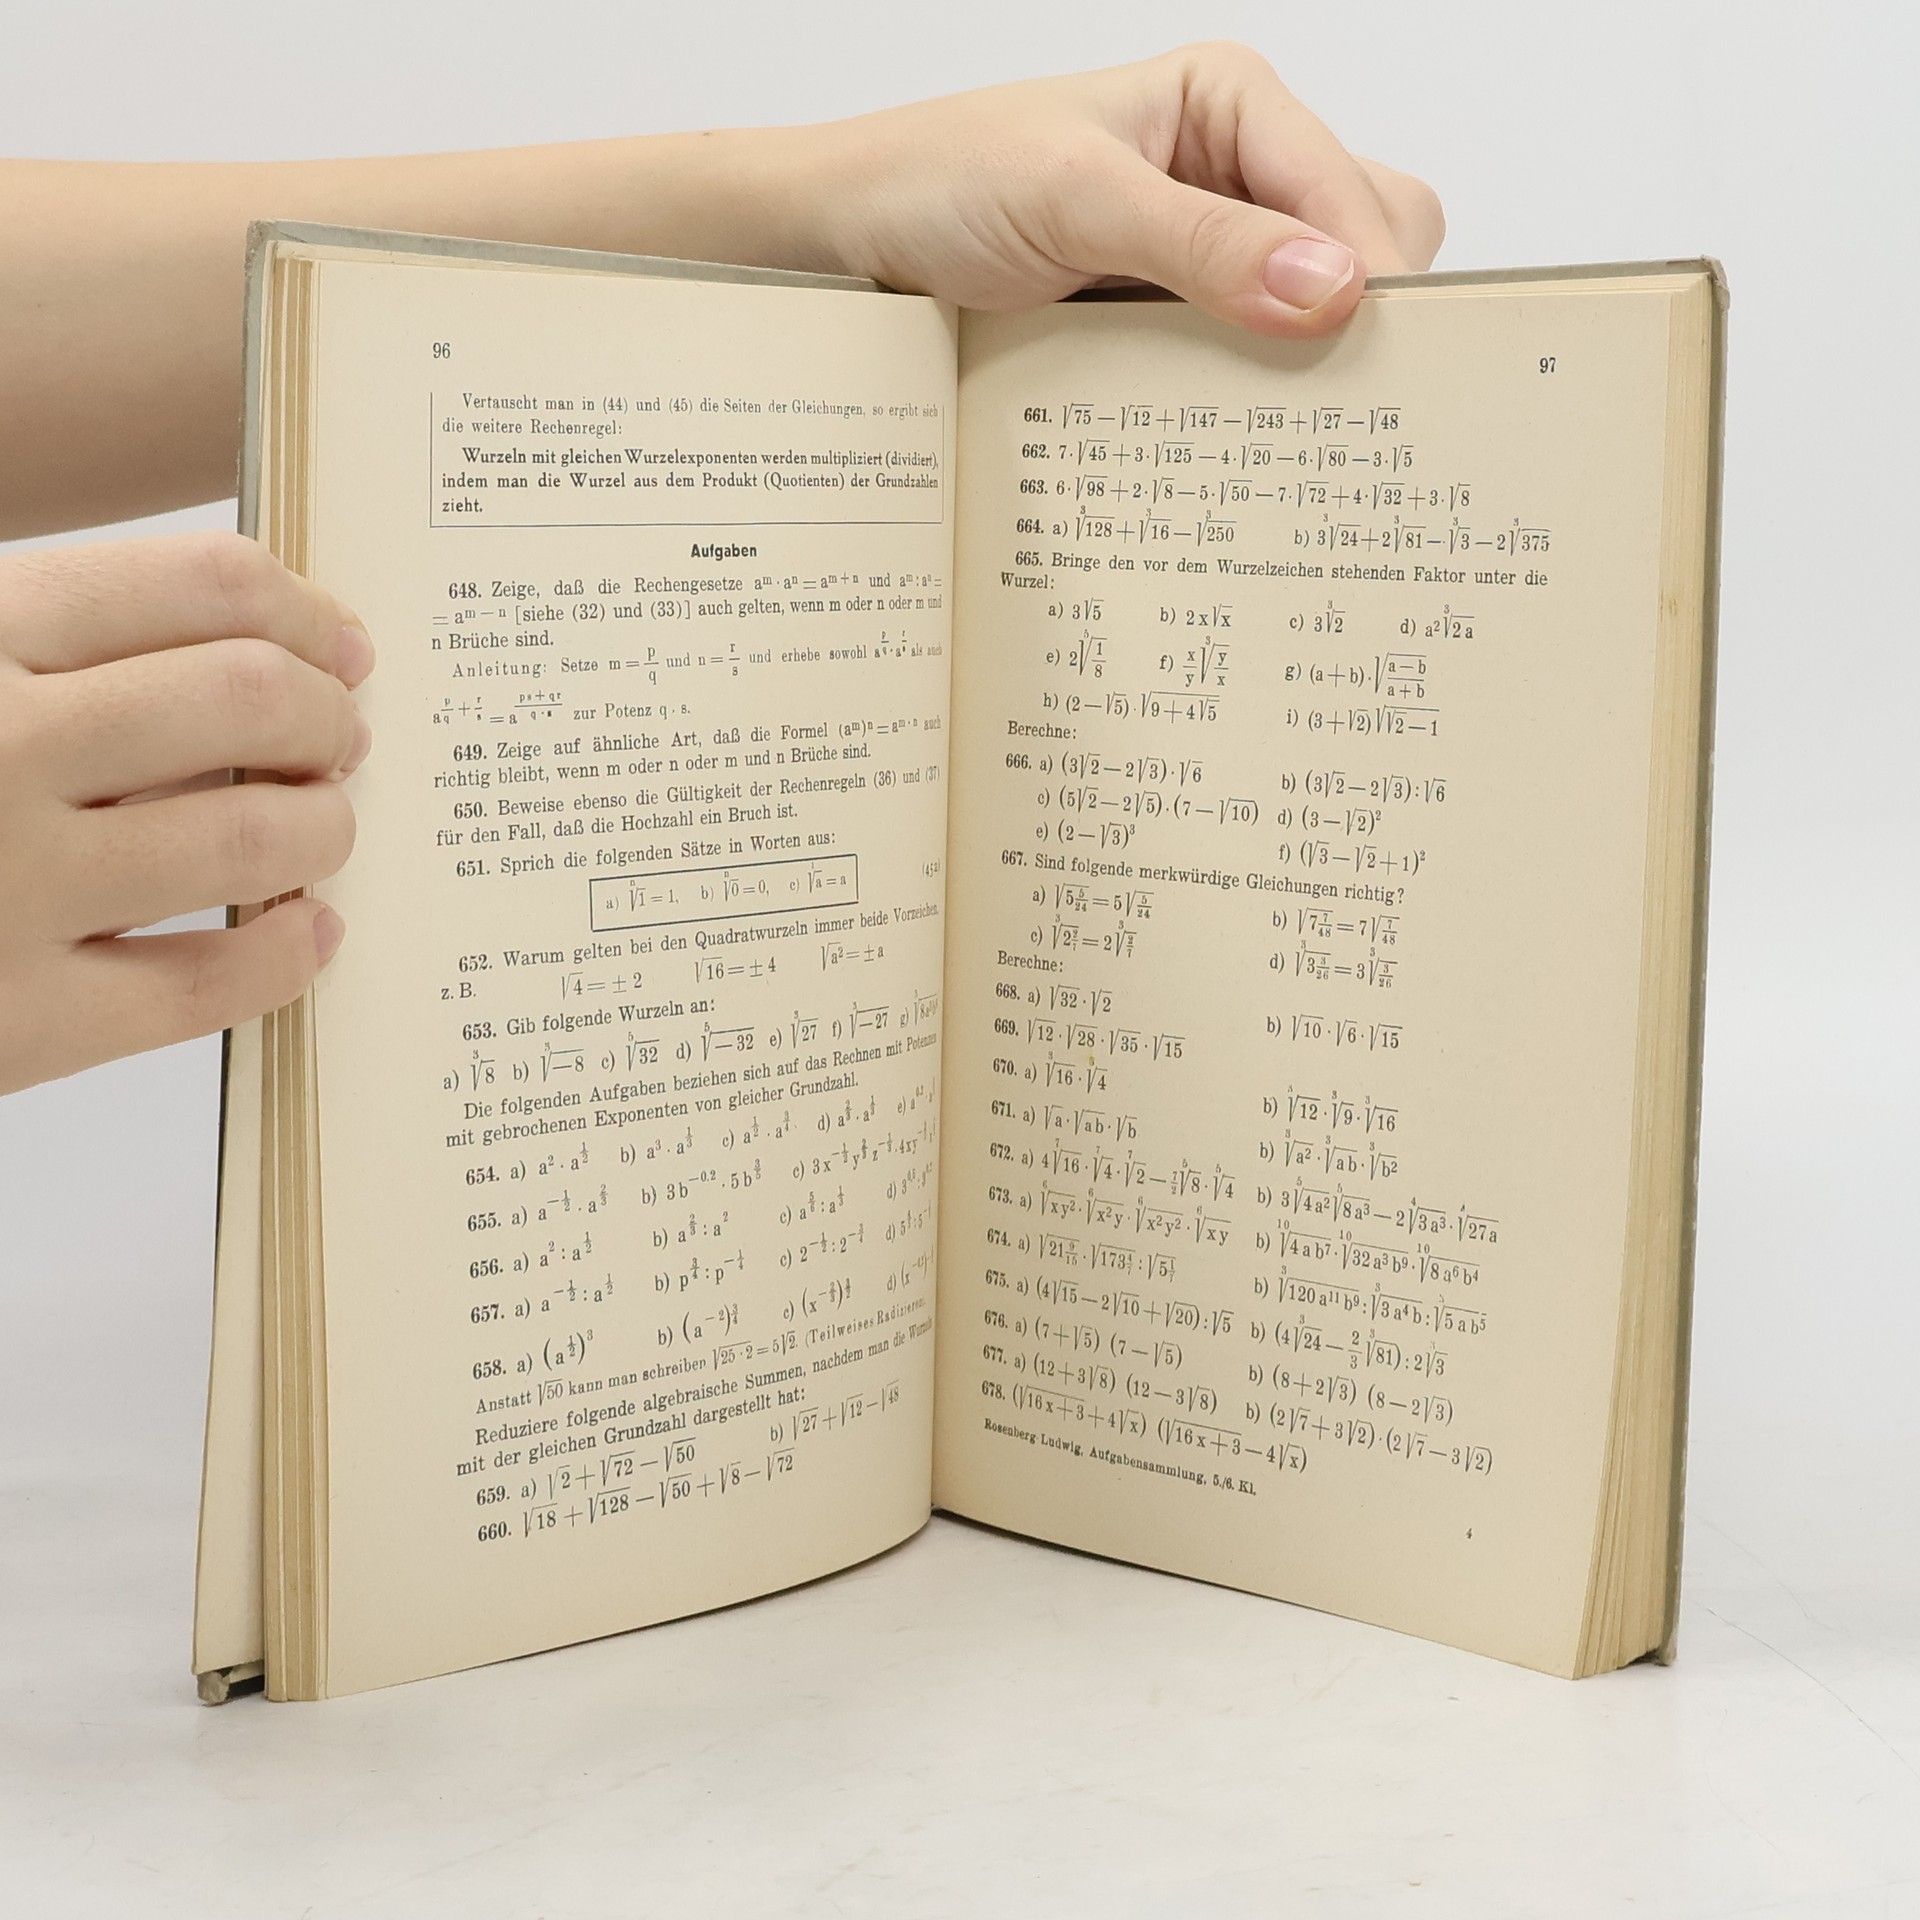 96
Vertauscht man in (44) und (45) die Seiten der Gleichungen, so ergibt sich
die weitere Rechenregel:
Wurzeln mit gleichen Wurzelexponenten werden multipliziert (dividiert),
indem man die Wurzel aus dem Produkt (Quotienten) der Grundzahlen
zieht.
Aufgaben
648. Zeige, daß die Rechengesetze aᵐ · aⁿ = aᵐ⁺ⁿ und aᵐ : aⁿ =
= aᵐ⁻ⁿ [siehe (32) und (33)] auch gelten, wenn m oder n oder m und
n Brüche sind.
Anleitung: Setze m = p/q und n = r/s und erhebe sowohl a^(p/q) · a^(r/s) als auch
a^(p/q + r/s) = a^((ps+qr)/(q·s)) zur Potenz q · s.
649. Zeige auf ähnliche Art, daß die Formel (aᵐ)ⁿ = aᵐ·ⁿ auch
richtig bleibt, wenn m oder n oder m und n Brüche sind.
650. Beweise ebenso die Gültigkeit der Rechenregeln (36) und (37)
für den Fall, daß die Hochzahl ein Bruch ist.
651. Sprich die folgenden Sätze in Worten aus:
a) ⁿ√1 = 1, b) ⁿ√0 = 0, c) ¹√a = a (45a)
652. Warum gelten bei den Quadratwurzeln immer beide Vorzeichen,
z. B. √4 = ± 2 √16 = ± 4 √a² = ± a
653. Gib folgende Wurzeln an:
a) ³√8 b) ³√−8 c) ⁵√32 d) ⁵√−32 e) ³√27 f) ³√−27 g)
Die folgenden Aufgaben beziehen sich auf das Rechnen mit Potenzen
mit gebrochenen Exponenten von gleicher Grundzahl.
654. a) a² · a^(1/2) b) a³ · a^(1/3) c) a^(1/2) · a^(3/4) d) a^(2/3) · a^(1/3) e)
655. a) a^(−1/2) · a^(2/3) b) 3b^(−0.2) · 5b^(3/5) c)
656. a) a² : a^(1/2) b) a^(2/3) : a² c) a^(5/6) : a^(1/3) d)
657. a) a^(−1/2) : a^(1/2) b) p^(3/4) : p^(−1/4) c) 2^(−1/2) : 2^(−3/4) d)
658. a) (a^(1/2))³ b) (a⁻²)^(3/4) c) d)
Anstatt √50 kann man schreiben √25 · 2 = 5√2. (Teilweises Radizieren.)
Reduziere folgende algebraische Summen, nachdem man die Wurzeln
mit der gleichen Grundzahl dargestellt hat:
659. a) √2 + √72 − √50 b) √27 + √12 − √48
660. √18 + √128 − √50 + √8 − √72
97
661. √75 − √12 + √147 − √243 + √27 − √48
662. 7 · √45 + 3 · √125 − 4 · √20 − 6 · √80 − 3 · √5
663. 6 · √98 + 2 · √8 − 5 · √50 − 7 · √72 + 4 · √32 + 3 · √8
664. a) ³√128 + ³√16 − ³√250 b) 3 ³√24 + 2 ³√81 − ³√3 − 2 ³√375
665. Bringe den vor dem Wurzelzeichen stehenden Faktor unter die
Wurzel:
a) 3√5 b) 2x√x c) 3 ³√2 d) a² ³√2a
e) 2 ⁵√(1/8) f) x/y ³√(y/x) g) (a + b) · √((a−b)/(a+b))
h) (2 − √5) · √(9 + 4√5) i) (3 + √2) √(√2 − 1)
Berechne:
666. a) (3√2 − 2√3) · √6 b) (3√2 − 2√3) : √6
c) (5√2 − 2√5) · (7 − √10) d) (3 − √2)²
e) (2 − √3)³ f) (√3 − √2 + 1)²
667. Sind folgende merkwürdige Gleichungen richtig?
a) √(5 5/24) = 5√(5/24) b) √(7 7/48) = 7√(7/48)
c) ³√(2 2/7) = 2 ³√(2/7) d) ³√(3 3/26) = 3 ³√(3/26)
Berechne:
668. a) √32 · √2 b) √10 · √6 · √15
669. √12 · √28 · √35 · √15
670. a) ³√16 · ³√4 b) ³√12 · ³√9 · ³√16
671. a) √a · √ab · √b b) ³√a² · ³√ab · ³√b²
672. a) 4 ⁷√16 · ⁷√4 · ⁷√2 − 7/2 ⁵√8 · ⁵√4 b) 3 ⁵√4a² ⁵√8a³ − 2 ⁴√3a³ · ⁴√27a
673. a) ⁶√xy² · ⁶√x²y · ⁶√x²y² · ⁶√xy b) ¹⁰√4ab⁷ · ¹⁰√32a³b⁹ · ¹⁰√8a⁶b⁴
674. a) √(21 9/15) · √(173 4/7) : √(5 1/7) b) ³√120a¹¹b⁹ : ³√3a⁴b : ³√5ab⁵
675. a) (4√15 − 2√10 + √20) : √5 b) (4 ³√24 − 2/3 ³√81) : 2 ³√3
676. a) (7 + √5) (7 − √5) b) (8 + 2√3) (8 − 2√3)
677. a) (12 + 3√8) (12 − 3√8) b) (2√7 + 3√2) · (2√7 − 3√2)
678. (√16x + 3 + 4√x) (√16x + 3 − 4√x)
Rosenberg-Ludwig, Aufgabensammlung, 5./6. Kl.
4